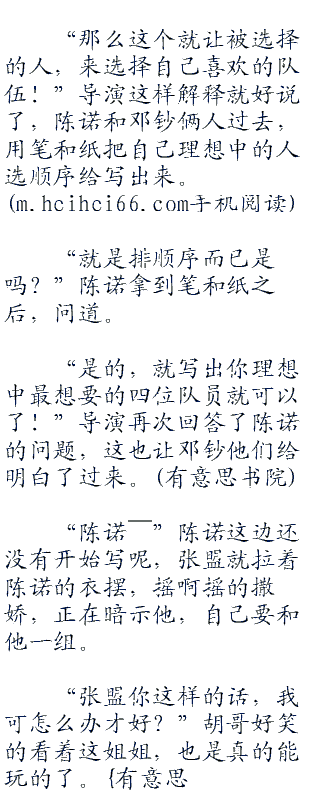 “那么这个就让被选择
的人，来选择自己喜欢的队
伍！”导演这样解释就好说
了，陈诺和邓钞俩人过去，
用笔和纸把自己理想中的人
选顺序给写出来。
(m.hcihci66.com手机阅读)
“就是排顺序而已是
吗？”陈诺拿到笔和纸之
后，问道。
“是的，就写出你理想
中最想要的四位队员就可以
了！”导演再次回答了陈诺
的问题，这也让邓钞他们给
明白了过来。(有意思书院)
“陈诺——”陈诺这边还
没有开始写呢，张盟就拉着
陈诺的衣摆，摇啊摇的撒
娇，正在暗示他，自己要和
他一组。
“张盟你这样的话，我
可怎么办才好？”胡哥好笑
的看着这姐姐，也是真的能
玩的了。{有意思